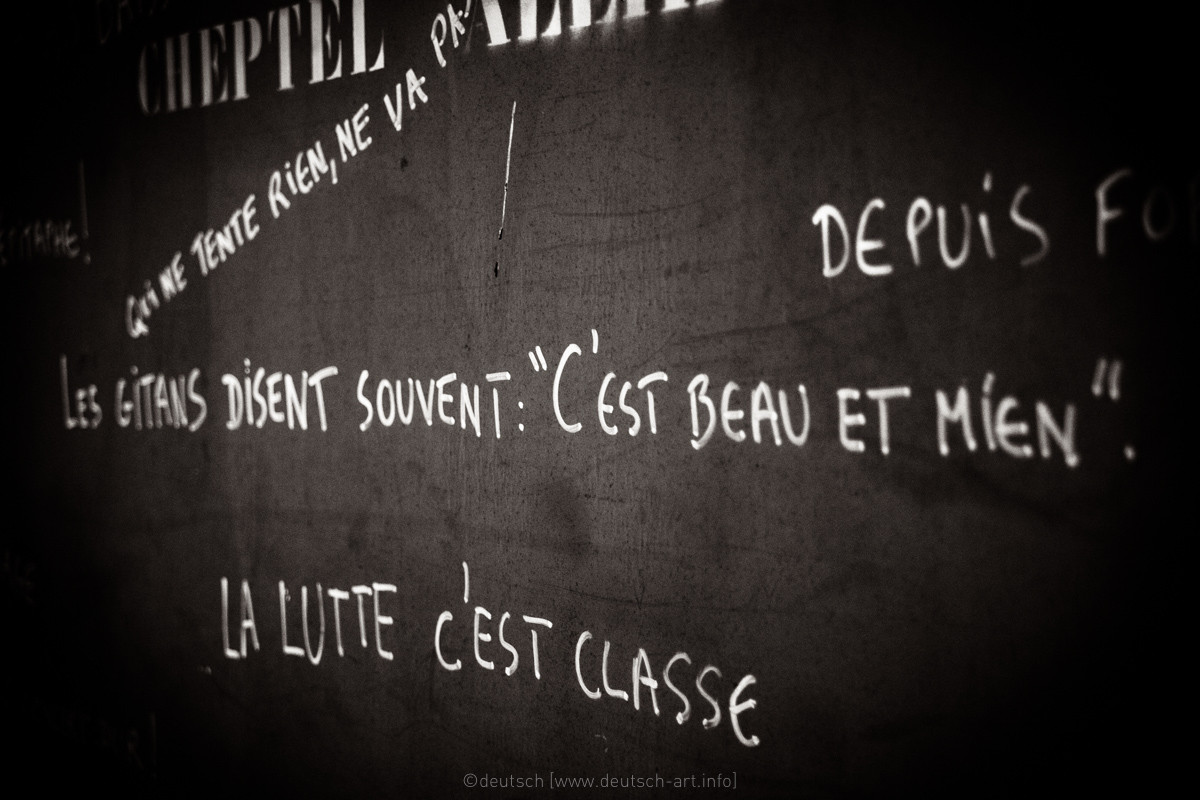 CHEPTEL
QUI NE TENTE RIEN, NE VA PAS
ÉPITAPHE!
DEPUIS
LES GITANS DISENT SOUVENT : "C'EST BEAU ET MIEN".
LA LUTTE C'EST CLASSE
©deutsch [www.deutsch-art.info]